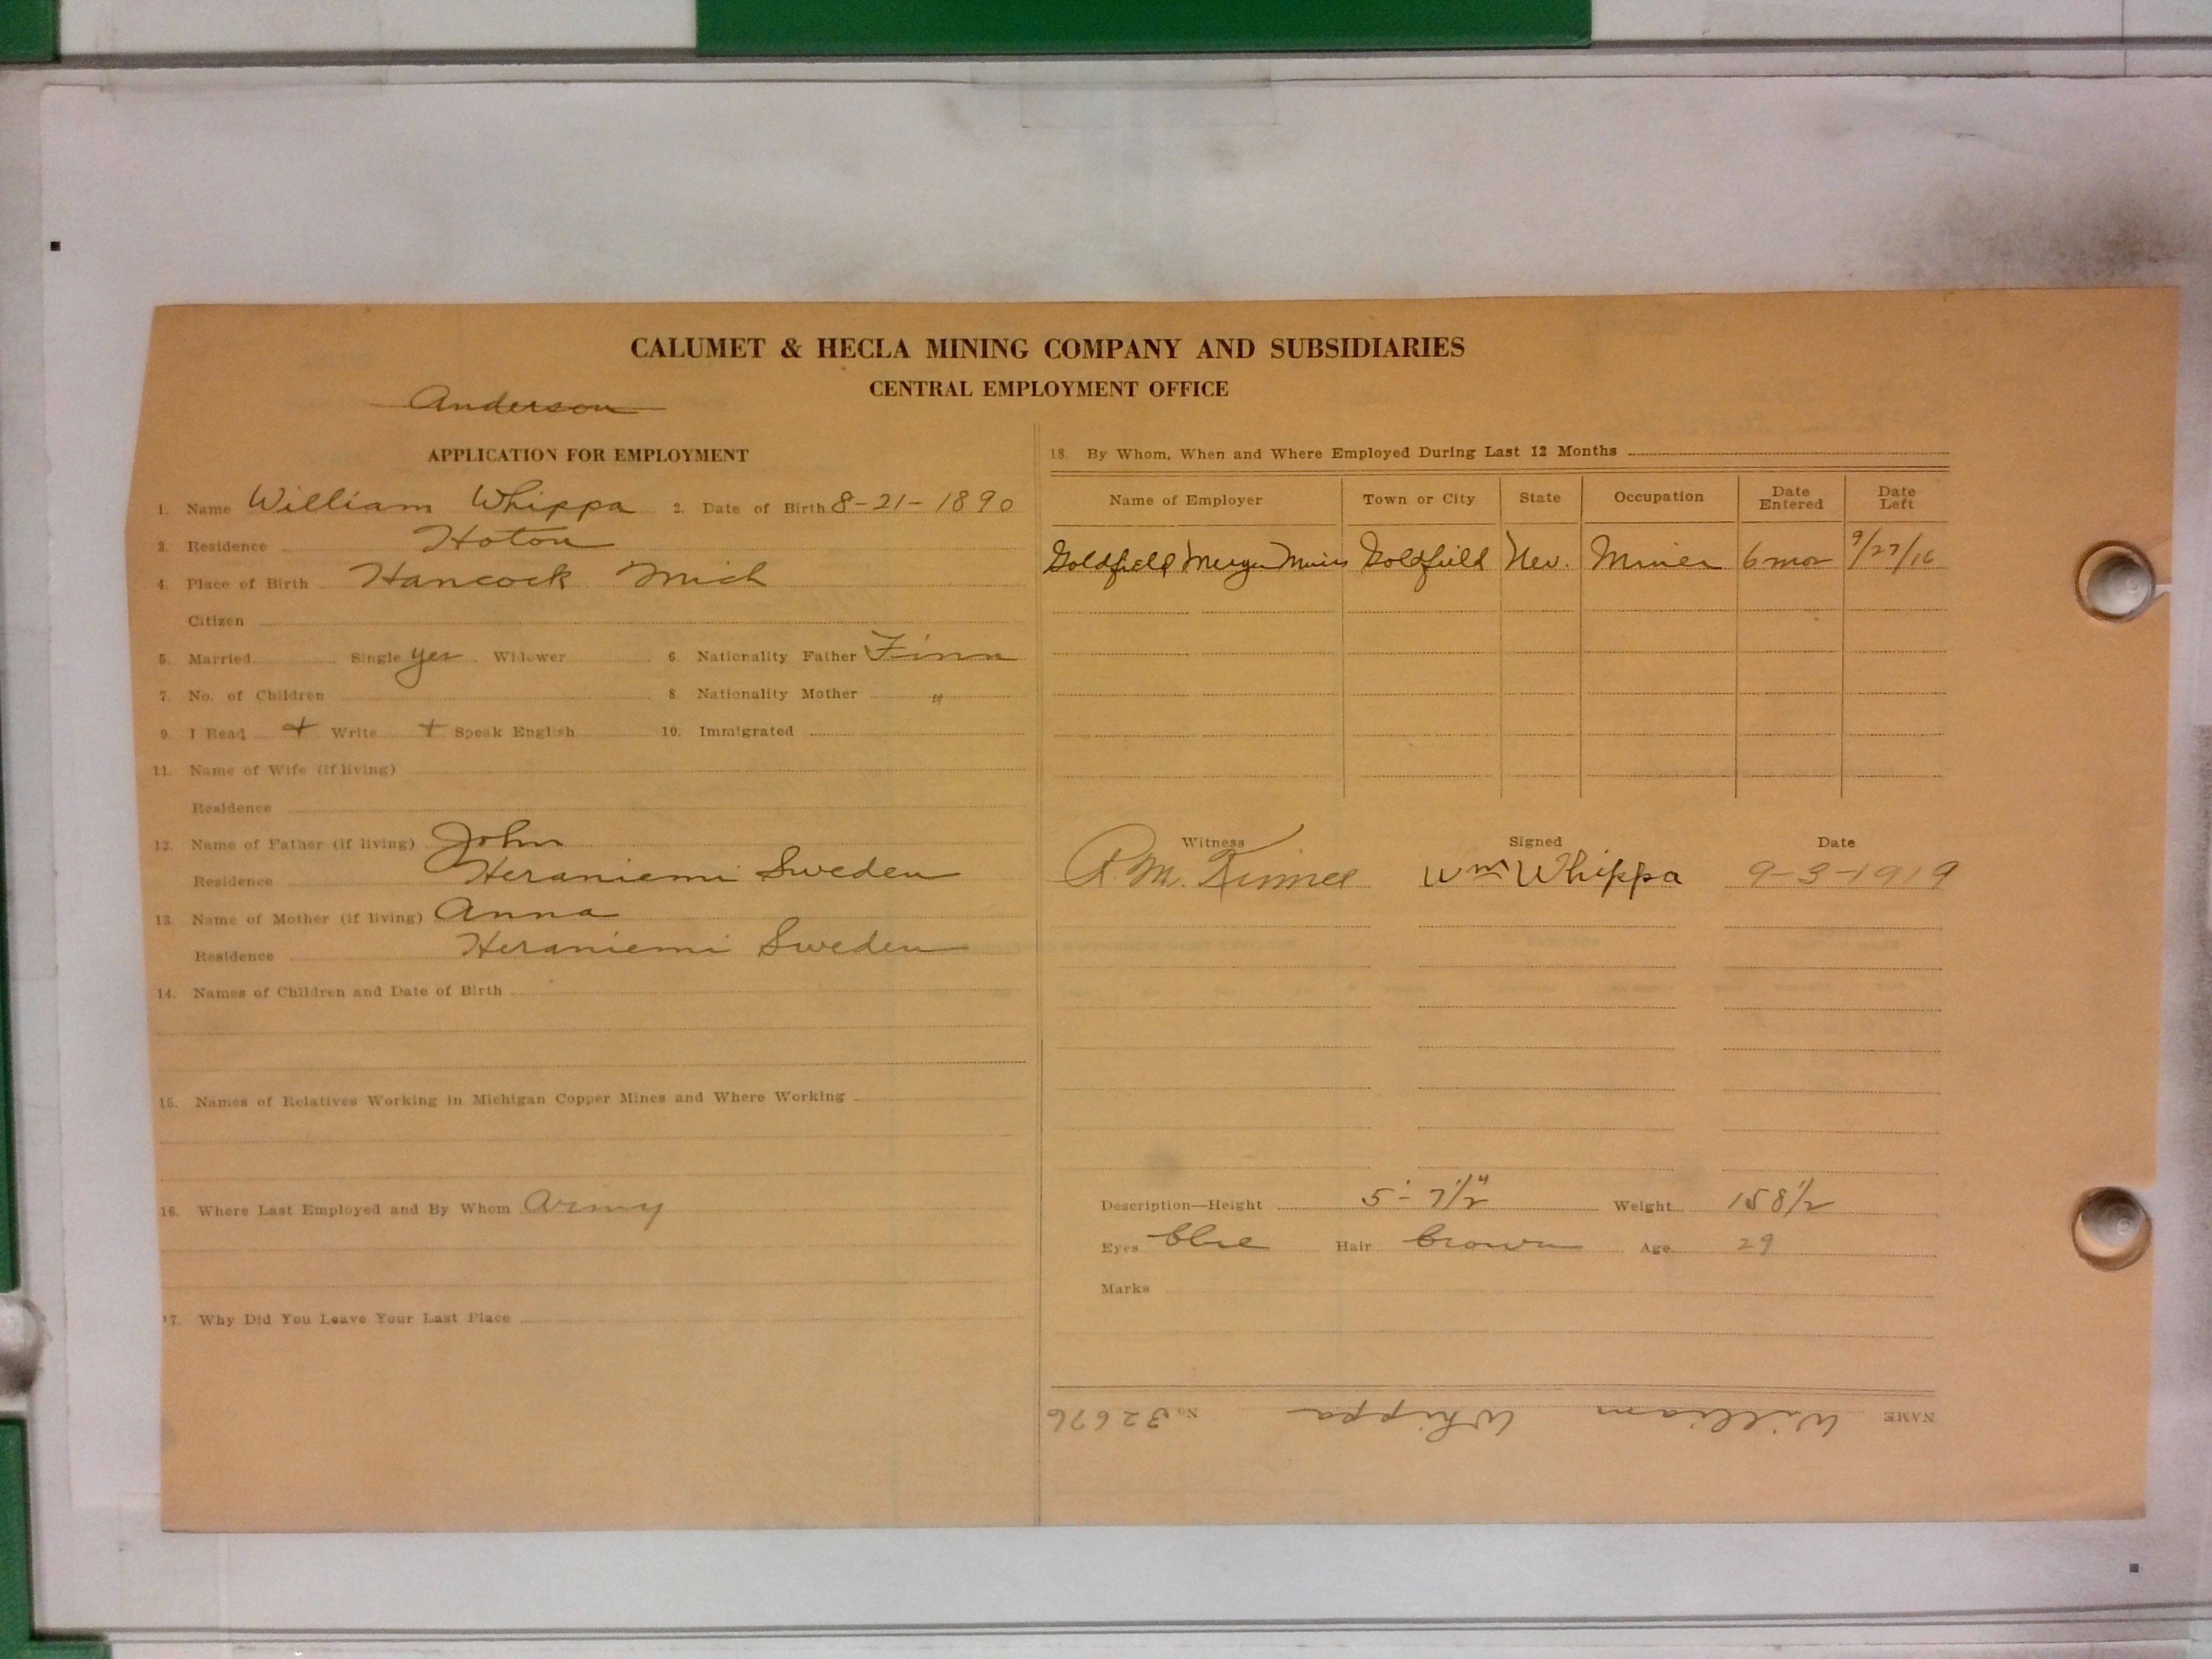 CALUMET & HECLA MINING COMPANY AND SUBSIDIARIES
CENTRAL EMPLOYMENT OFFICE
Anderson
APPLICATION FOR EMPLOYMENT
1. Name William Whippa 2. Date of Birth 8-21-1890
3. Residence Hoton
4. Place of Birth Hancock Mich
Citizen
5. Married Single yes Widower 6. Nationality Father Finn
7. No. of Children 8. Nationality Mother "
9. I Read + Write + Speak English 10. Immigrated
11. Name of Wife (if living)
Residence
12. Name of Father (if living) John
Residence Heraniemi Sweden
13. Name of Mother (if living) Anna
Residence Heraniemi Sweden
14. Names of Children and Date of Birth
15. Names of Relatives Working in Michigan Copper Mines and Where Working
16. Where Last Employed and By Whom Army
17. Why Did You Leave Your Last Place
18. By Whom, When and Where Employed During Last 12 Months
Name of Employer Town or City State Occupation Date Entered Date Left
Goldfield Merger Mines Goldfield Nev. Miner 6 mos 9/27/16
Witness Signed Date
Wm Whippa 9-3-1919
Description—Height 5'-7 1/2" Weight 158 1/2
Eyes blue Hair brown Age 29
Marks
NAME William Whippa No. 32676